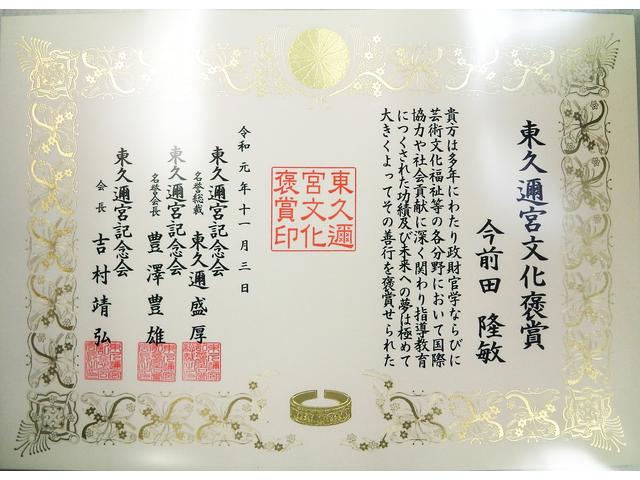 東久邇宮文化褒賞
今前田 隆敏
貴方は多年にわたり政財官学ならびに
芸術文化福祉等の各分野において国際
協力や社会貢献に深く関わり指導教育
につくされた功績及び未来への夢は極めて
大きくよってその善行を褒賞せられた
東久邇
宮文化
褒賞印
令和元年十一月三日
東久邇宮記念会
名誉総裁 東久邇盛厚
東久邇宮記念会
名誉会長 豊澤豊雄
東久邇宮記念会
会長 吉村靖弘